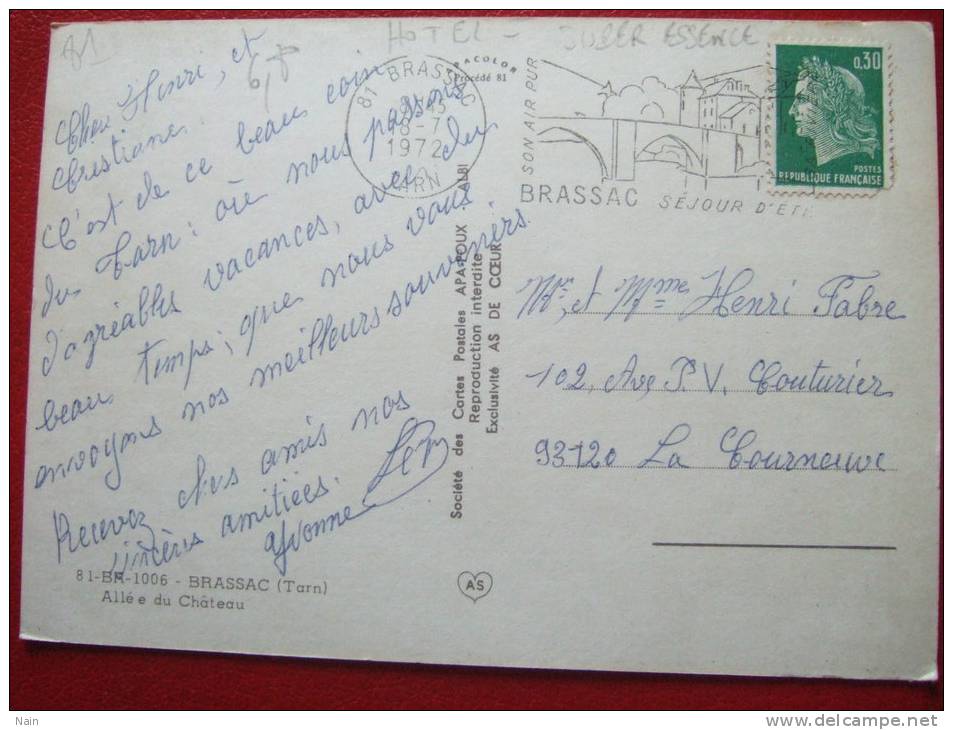 81
HOTEL - SUPER ESSENCE
Cher Henri, et
Crestiane.
C'est de ce beau coin
du Tarn: où nous passons
d'agréables vacances, avec du
beau temps; que nous vous
envoyons nos meilleurs souvenirs.
Recevez chers amis nos
sincères amitiées.
Yvonne
81-BR-1006 - BRASSAC (Tarn)
Allée du Château
APACOLOR
Procédé 81
81 BRASSAC
18-7
1972
TARN
SON AIR PUR
BRASSAC SÉJOUR D'ÉTÉ
0,30
POSTES
REPUBLIQUE FRANÇAISE
Société des Cartes Postales APA-POUX - ALBI
Reproduction interdite
Exclusivité AS DE CŒUR
AS
Mr, et Mme Henri Fabre
102, Ave P.V. Couturier
93120 La Courneuve
Nain
www.delcampe.net